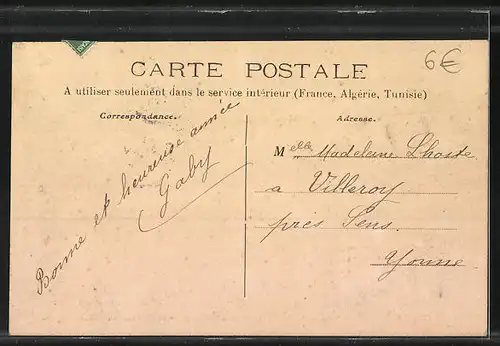 6€
CARTE POSTALE
A utiliser seulement dans le service intérieur (France, Algérie, Tunisie)
Correspondance.
Bonne et heureuse année
Gaby
Adresse.
Melle Madeleine Lhoste
a Villeroy
près Sens.
Yonne